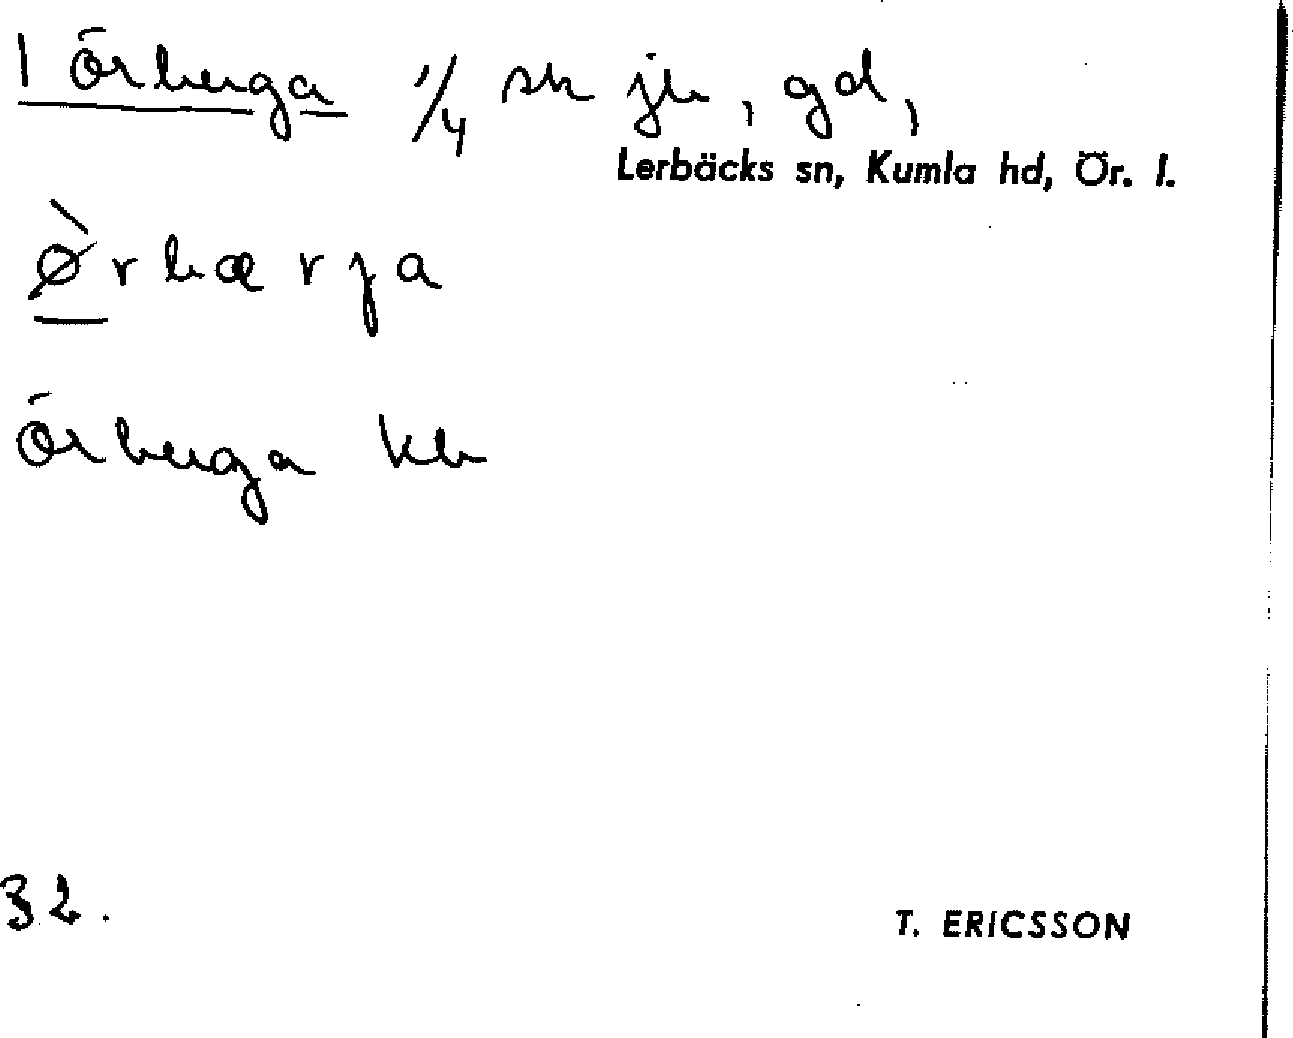 1 Örberga 1/4 sk jb, gd,
Lerbäcks sn, Kumla hd, Ör. l.
ø̀rbærja
Örberga kb
32.
T. ERICSSON